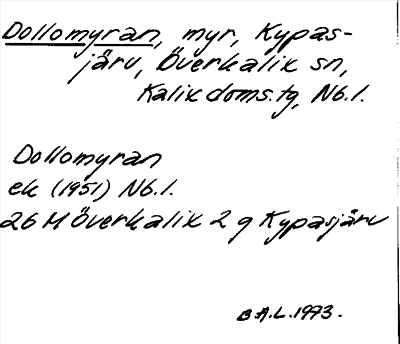 Dollomyran, myr, Kypas-
järv, Överkalix sn,
Kalix doms.tg, Nb.l.
Dollomyran
ek (1951) Nb.l.
26 M Överkalix 2 g Kypasjärv
B.A.L. 1973.